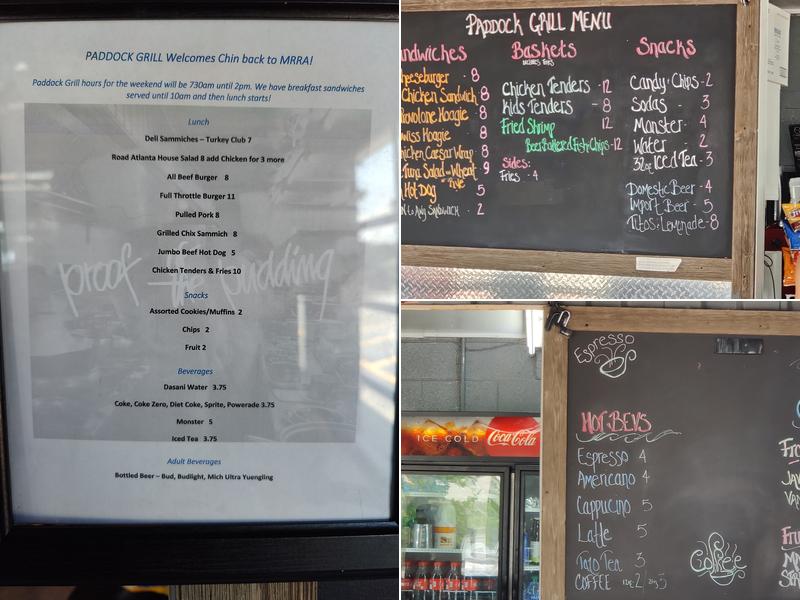 PADDOCK GRILL Welcomes Chin back to MRRA!
Paddock Grill hours for the weekend will be 730am until 2pm. We have breakfast sandwiches
served until 10am and then lunch starts!
Lunch
Deli Sammiches – Turkey Club 7
Road Atlanta House Salad 8 add Chicken for 3 more
All Beef Burger 8
Full Throttle Burger 11
Pulled Pork 8
Grilled Chix Sammich 8
Jumbo Beef Hot Dog 5
Chicken Tenders & Fries 10
proof of the pudding
Snacks
Assorted Cookies/Muffins 2
Chips 2
Fruit 2
Beverages
Dasani Water 3.75
Coke, Coke Zero, Diet Coke, Sprite, Powerade 3.75
Monster 5
Iced Tea 3.75
Adult Beverages
Bottled Beer – Bud, Budlight, Mich Ultra Yuengling
PADDOCK GRILL MENU
andwiches
heeseburger - 8
Chicken Sandwich 8
rovolone Hoagie 8
wiss Hoagie 8
hicken Caesar Wrap 8
Tuna Salad - Wheat 9
Hot Dog 5
to Any SANDWICH 2
Baskets
Chicken Tenders - 12
Kids Tenders - 8
Fried Shrimp 12
Beer Battered Fish+Chips - 12
Sides:
Fries - 4
Snacks
Candy + Chips - 2
Sodas - 3
Monster - 4
Water 2
32oz Iced Tea - 3
Domestic Beer - 4
Import Beer - 5
Titos + Lemonade - 8
Espresso
HOT BEVS
Espresso 4
Americano 4
Cappucino 5
Latte 5
Tazo Tea 3
COFFEE reg 2 big 3
Coffee
ICE COLD Coca-Cola